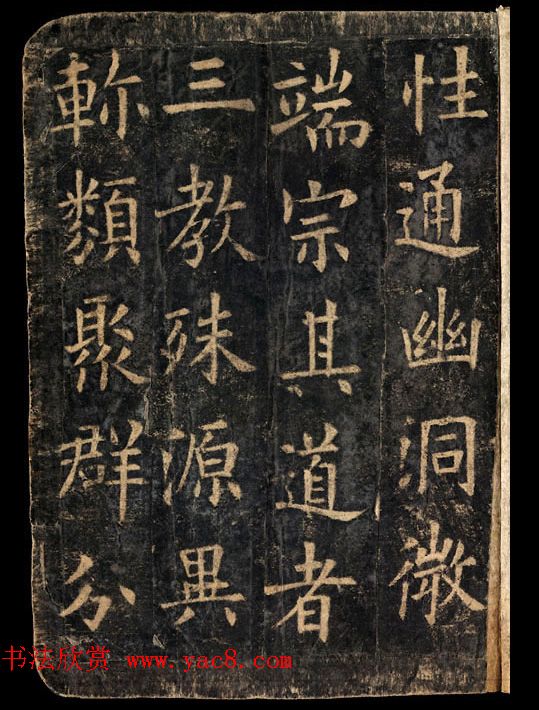 性通幽洞微
端宗其道者
三教殊源異
軫類聚群分
书法欣赏 www.yac8.com